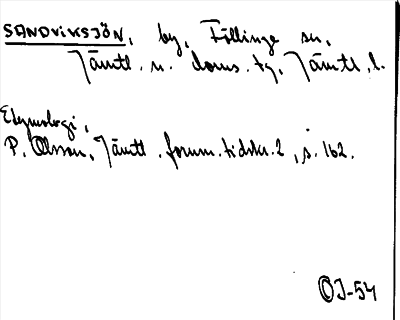 SANDVIKSJÖN, by, Föllinge sn,
Jämtl. n. doms. tg, Jämtl. l.
Etymologi,
P. Olsson, Jämtl. fornm. tidskr. 2, s. 162.
OJ-54